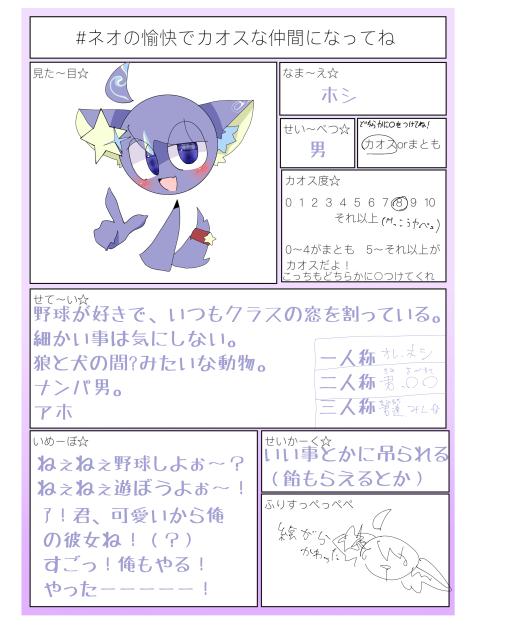 #ネオの愉快でカオスな仲間になってね
見た～目☆
なま～え☆
ホシ
せい～べつ☆
男
どちらかに○をつけてね!
カオスorまとも
カオス度☆
0 1 2 3 4 5 6 7 8 9 10
それ以上
0～4がまとも 5～それ以上が
カオスだよ！
こっちもどちらかに○つけてくれ
せて～い☆
野球が好きで、いつもクラスの窓を割っている。
細かい事は気にしない。
狼と犬の間?みたいな動物。
ナンパ男。
アホ
一人称 オレ、ホシ
二人称 君、○○
三人称
いめーぼ☆
ねぇねぇ野球しよぉ～？
ねぇねぇ遊ぼうよぉ～！
ア！君、可愛いから俺
の彼女ね！（？）
すごっ！俺もやる！
やったーーーーー！
せいかーく☆
いい事とかに吊られる
（飴もらえるとか）
ふりすっぺっぺっぺ
絵がら
かわった